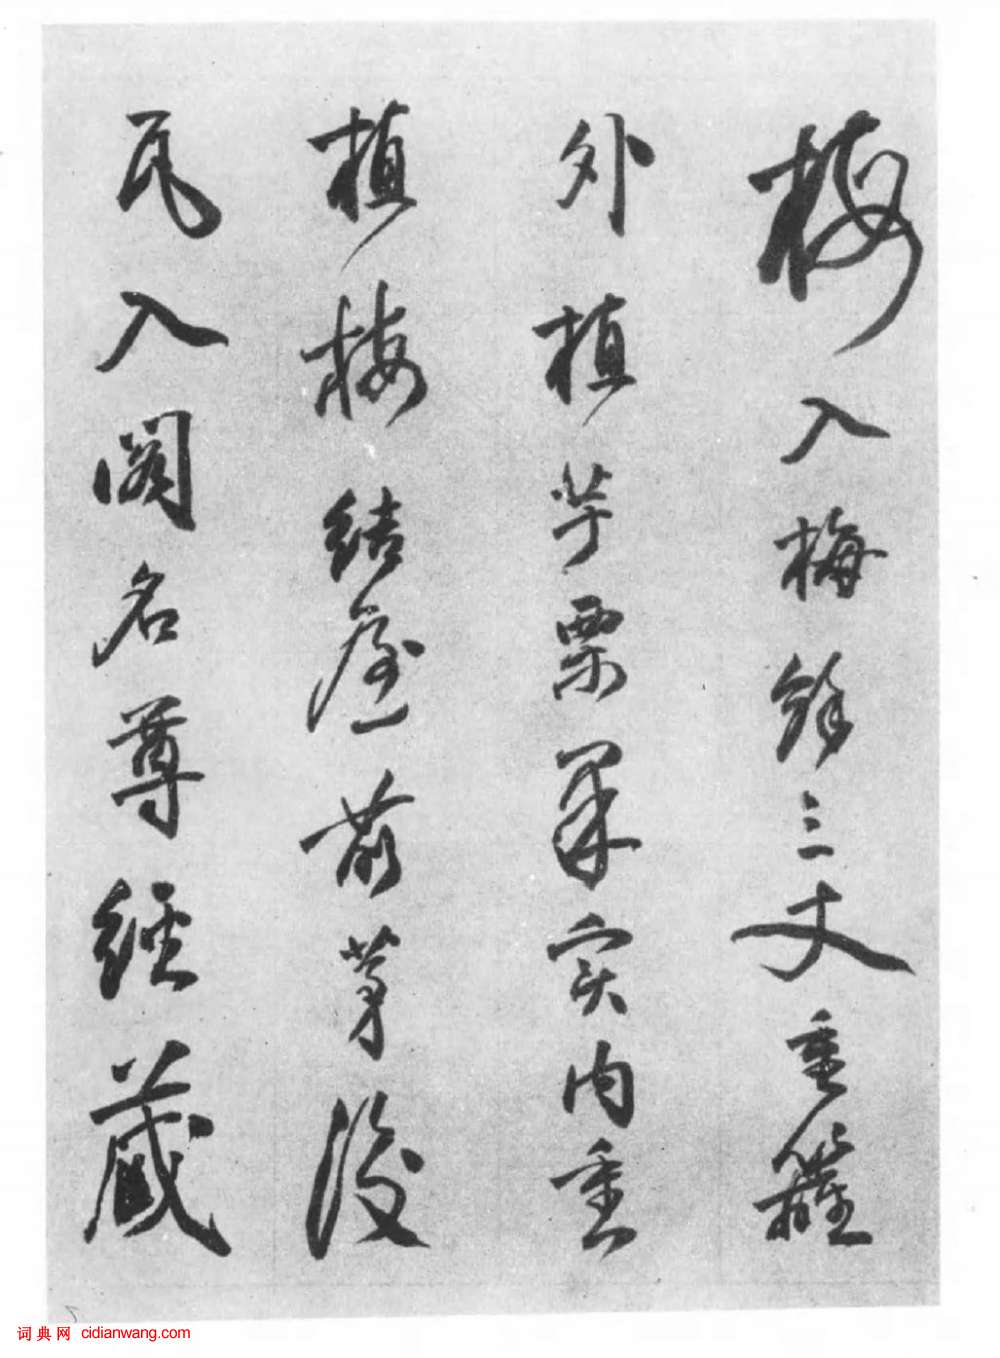 梅入梅餘三丈重籬
外植芋栗果实内重
植梅結屋前茅後
瓦入阁名尊經藏
词典网 cidianwang.com